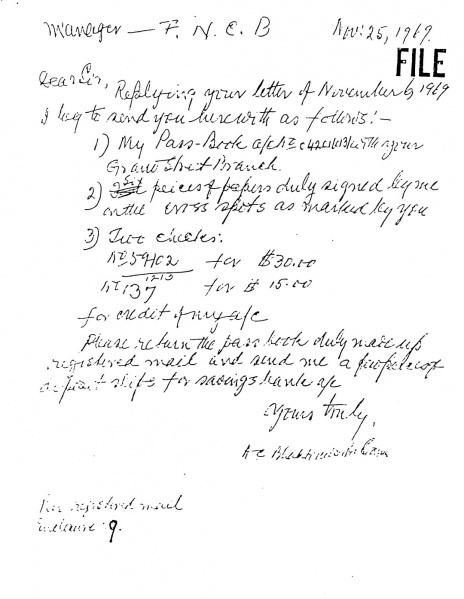 Manager — F. N. C. B
Nov: 25, 1969.
FILE
Dear Sir,
Replying your letter of November 6, 1969
I beg to send you herewith as follows:—
1) My Pass-Book a/c No with your
Grand Street Branch.
2) Six peices of papers duly signed by me
on the cross spots as marked by you
3) Two checks:
No 59102 for $30.00
1213
No 137 for $ 15.00
for credit of my a/c
Please return the pass book duly made up
registered mail and send me a few pieces of
deposit slips for savings bank a/c
Yours truly,
AC Bhaktivedanta Swami
Per registered mail
Enclosure: 9.